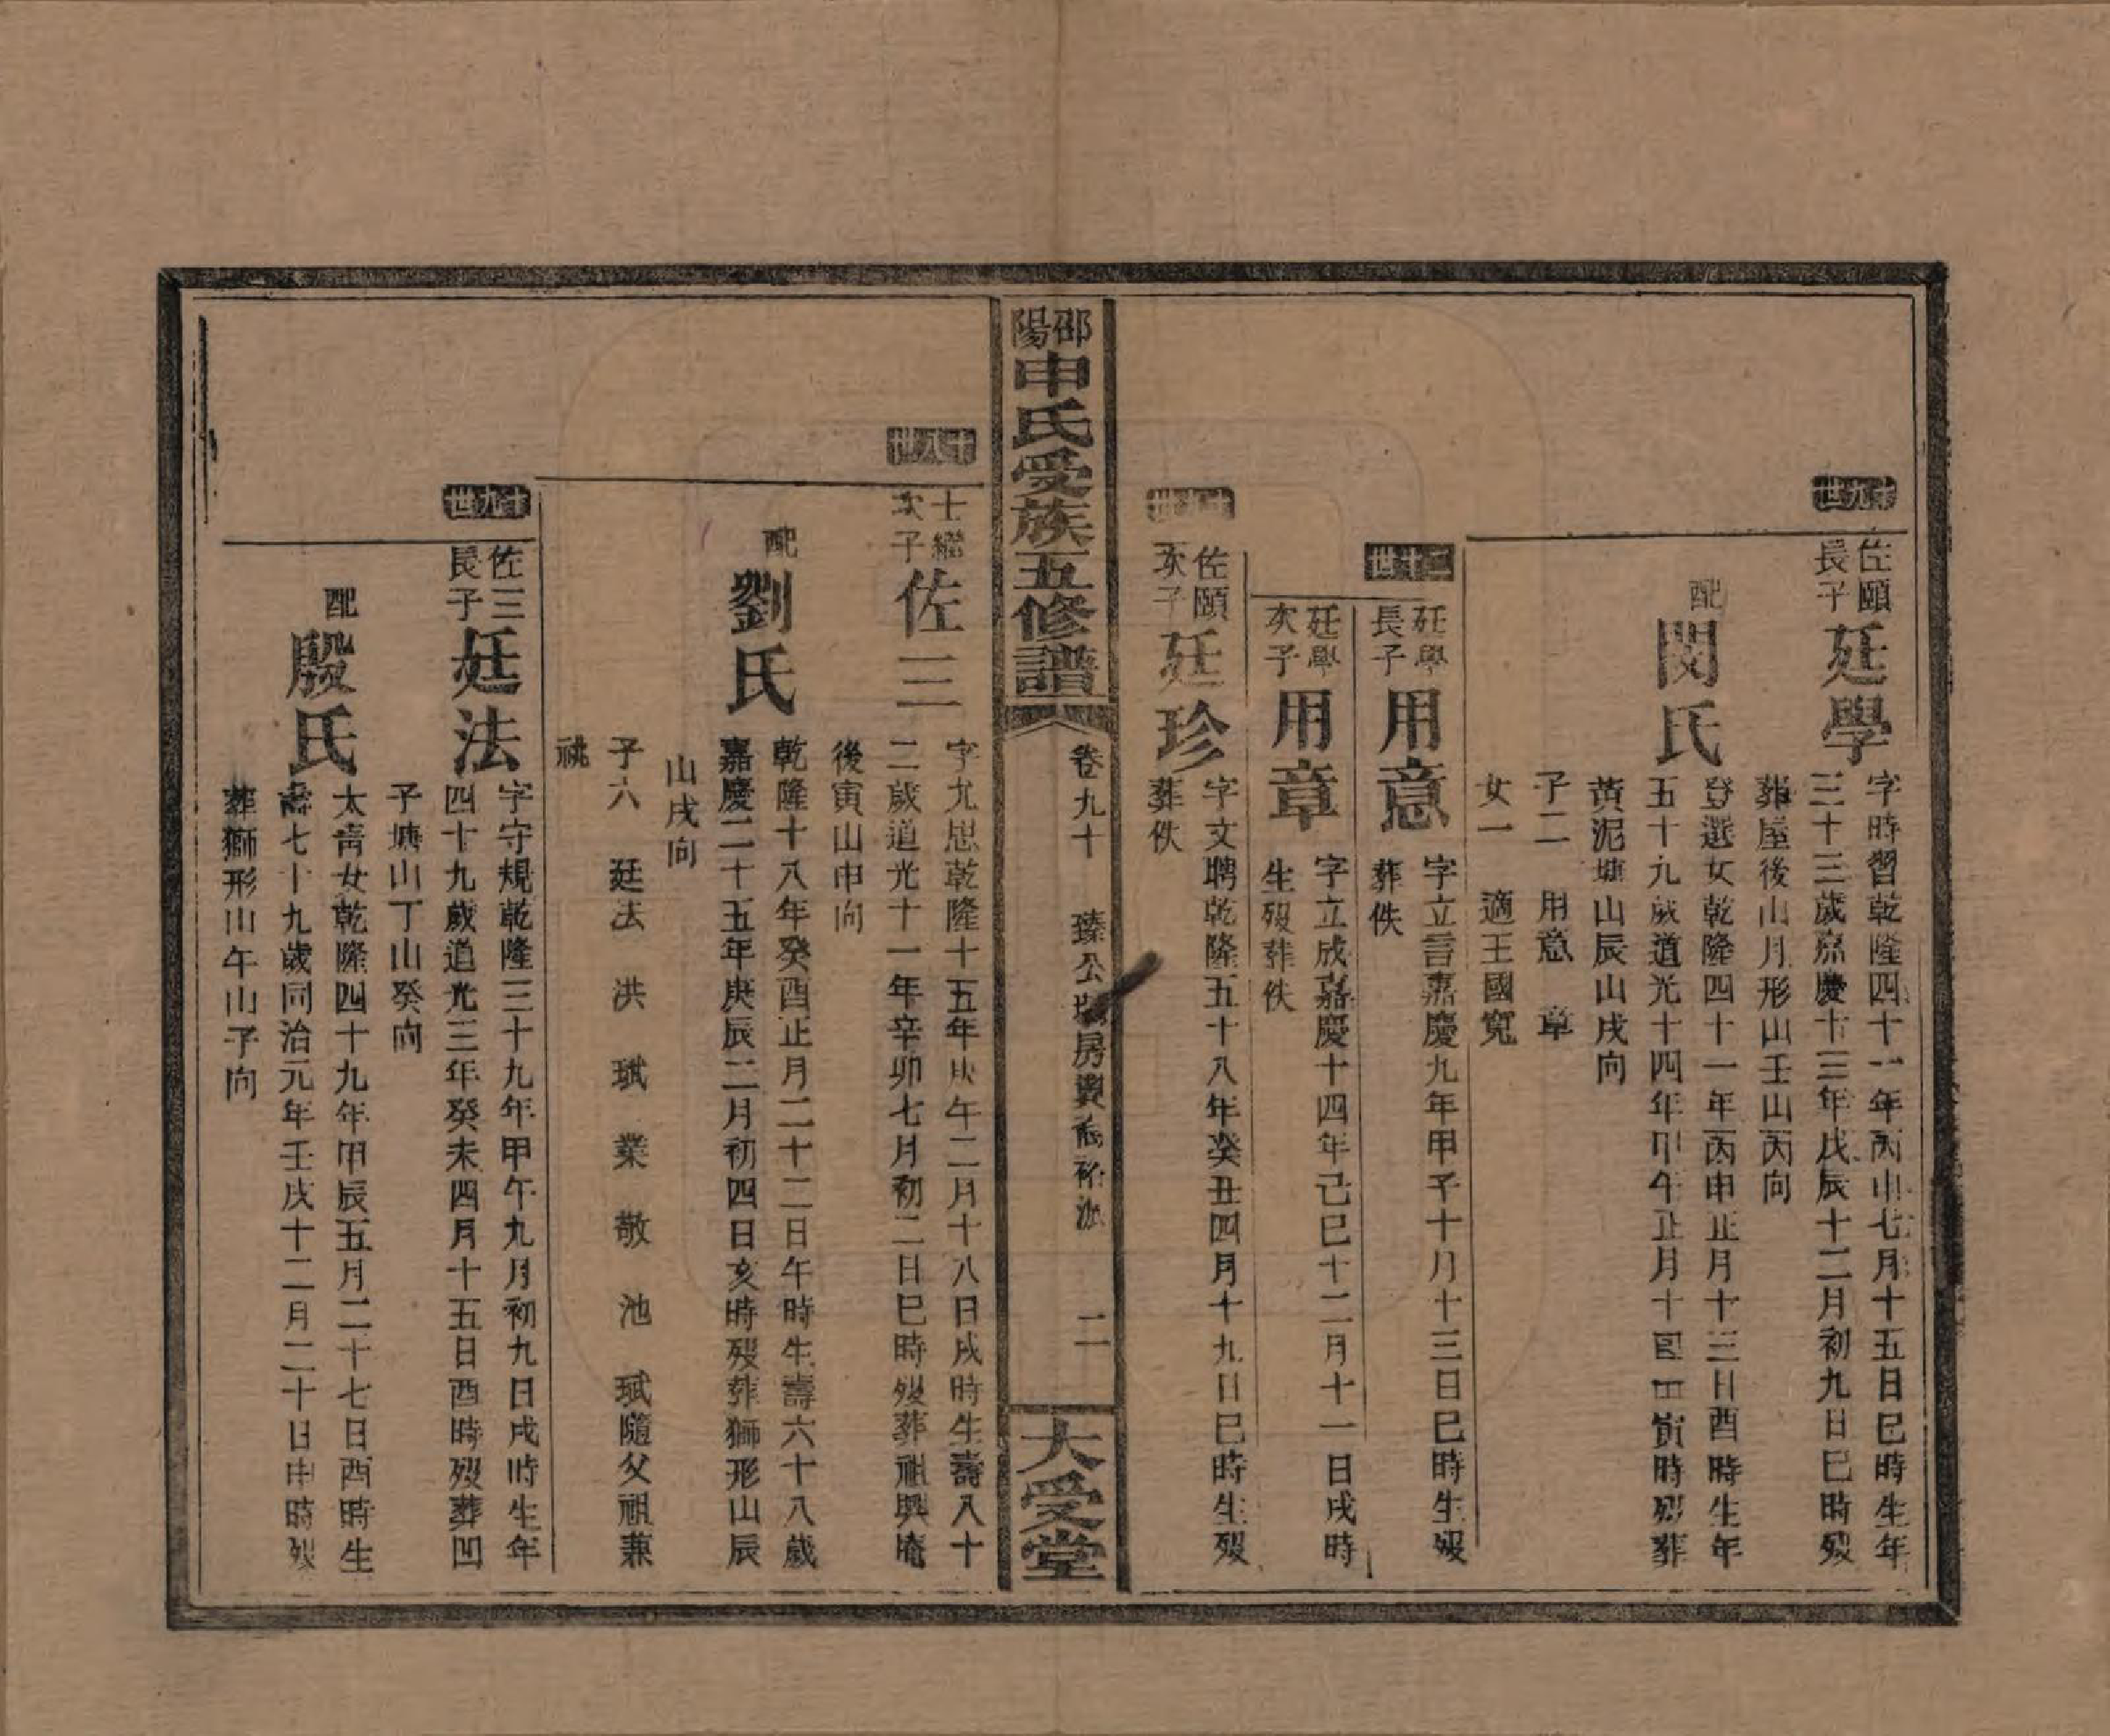 十九世
佐頤長子
廷學
字時習乾隆四十一年丙申七月十五日巳時生年
三十三歲嘉慶十三年戊辰十二月初九日巳時歿
葬屋後山月形山壬山丙向
配
閔氏
登選女乾隆四十一年丙申正月十三日酉時生年
五十九歲道光十四年甲午正月十四日寅時歿葬
黃泥塘山辰山戌向
子二 用意 章
女一 適王國寬
二十世
廷學長子
用意
字立言嘉慶九年甲子十月十三日巳時生歿
葬佚
廷學次子
用章
字立成嘉慶十四年己巳十二月十一日戌時
生歿葬佚
十九世
佐頤次子
廷珍
字文聘乾隆五十八年癸丑四月十九日巳時生歿
葬佚
邵陽申氏受族五修譜
卷九十 臻公 房 裕派 二
大受堂
十八世
士繼次子
佐三
字尤思乾隆十五年庚午二月十八日戌時生壽八十
二歲道光十一年辛卯七月初二日巳時歿葬祖興庵
後寅山申向
配
劉氏
乾隆十八年癸酉正月二十二日午時生壽六十八歲
嘉慶二十五年庚辰二月初四日亥時歿葬獅形山辰
山戌向
子六 廷法 洪 珷 業 敬 池 珷隨父祖兼
祧
十九世
佐三長子
廷法
字守規乾隆三十九年甲午九月初九日戌時生年
四十九歲道光三年癸未四月十五日酉時歿葬凹
子塘山丁山癸向
配
殷氏
太靑女乾隆四十九年甲辰五月二十七日酉時生
壽七十九歲同治元年壬戌十二月二十日申時歿
葬獅形山午山子向